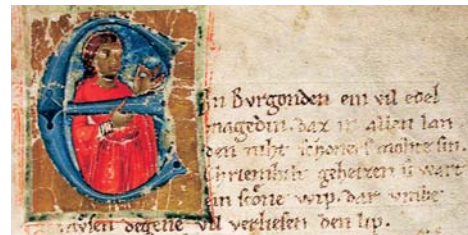 E
in Bvrgonden ein vil edel
magedin. daz in allen lan
den niht schoners mohte sin.
Chriemhilt geheizen wart
ein scone wip. dar vmbe
degene vil verliesen den lip.